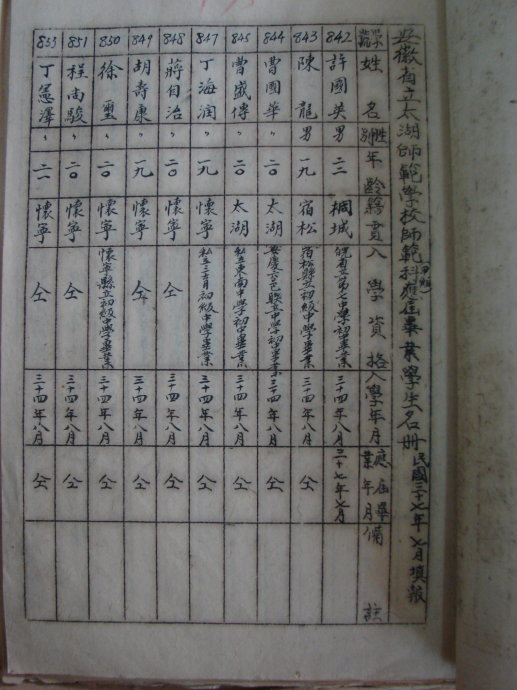 安徽省立太湖師範學校師範科(甲組)應屆畢業學生名冊 民國三十七年七月填報
學號 姓名 性別 年齡 籍貫 入學資格 入學年月 應屆畢業年月 備註
842 許國英 男 二二 桐城 皖省立第七中學初中畢業 三十四年八月 三十七年七月
843 陳龍 男 一九 宿松 宿松縣立初級中學畢業 三十四年八月 仝
844 曹國華 〃 二〇 太湖 安慶六邑聯立中學初中畢業 三十四年八月 仝
845 曹盛傳 〃 二〇 太湖 私立東南中學初中畢業 三十四年八月 仝
847 丁海潤 〃 一九 懷寧 私立三育初級中學畢業 三十四年八月 仝
848 蔣自治 〃 二〇 懷寧 仝 三十四年八月 仝
849 胡壽康 〃 一九 懷寧 仝 三十四年八月 仝
850 徐璽 〃 二〇 懷寧 懷寧縣立初級中學畢業 三十四年八月 仝
851 程尚駿 〃 二〇 懷寧 仝 三十四年八月 仝
853 丁憲澤 〃 二一 懷寧 仝 三十四年八月 仝